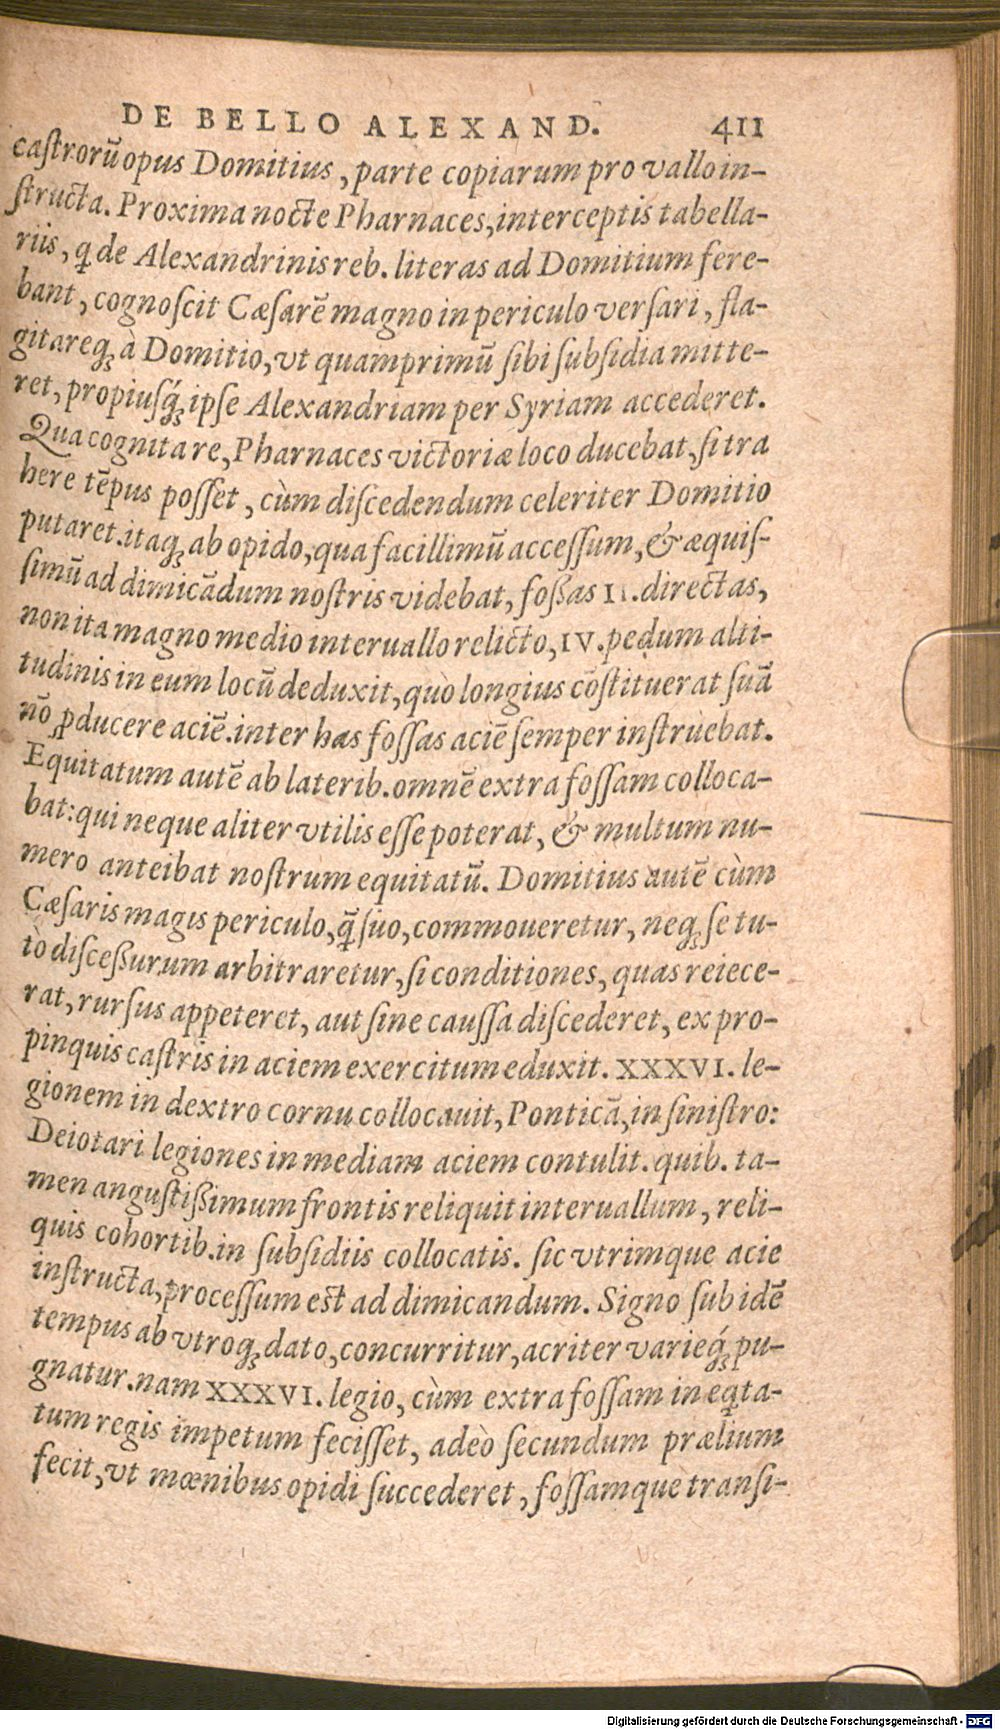 DE BELLO ALEXAND. 411
castrorũ opus Domitius, parte copiarum pro vallo in-
structa. Proxima nocte Pharnaces, interceptis tabella-
riis, q̃ de Alexandrinis reb. literas ad Domitium fere-
bant, cognoscit Cæsarẽ magno in periculo versari, fla-
gitareq; à Domitio, vt quamprimũ sibi subsidia mitte-
ret, propiusq́; ipse Alexandriam per Syriam accederet.
Qua cognita re, Pharnaces victoriæ loco ducebat, si tra
here tẽpus posset, cùm discedendum celeriter Domitio
putaret. itaq; ab opido, qua facillimũ accessum, & æquis-
simũ ad dimicãdum nostris videbat, foßas II. directas,
non ita magno medio interuallo relicto, IV. pedum alti-
tudinis in eum locũ deduxit, quò longius cõstituerat suã
nõ ꝓducere aciẽ. inter has fossas aciẽ semper instruebat.
Equitatum autẽ ab laterib. omnẽ extra fossam colloca-
bat: qui neque aliter vtilis esse poterat, & multum nu-
mero anteibat nostrum equitatũ. Domitius autẽ cùm
Cæsaris magis periculo, q̃ suo, commoueretur, neq; se tu-
tò discessurum arbitraretur, si conditiones, quas reiece-
rat, rursus appeteret, aut sine caussa discederet, ex pro-
pinquis castris in aciem exercitum eduxit. XXXVI. le-
gionem in dextro cornu collocauit, Ponticã, in sinistro:
Deiotari legiones in mediam aciem contulit. quib. ta-
men angustißimum frontis reliquit interuallum, reli-
quis cohortib. in subsidiis collocatis. sic vtrimque acie
instructa, processum est ad dimicandum. Signo sub idẽ
tempus ab vtroq; dato, concurritur, acriter varieq́; pu-
gnatur. nam XXXVI. legio, cùm extra fossam in eq̃ta-
tum regis impetum fecisset, adeò secundum prælium
fecit, vt mœnibus opidi succederet, fossamque transi-
Digitalisierung gefördert durch die Deutsche Forschungsgemeinschaft - DFG